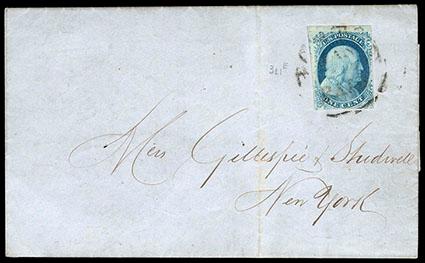 U.S. POSTAGE
ONE CENT
31 E
Mess Gillespie & Studwell
New York